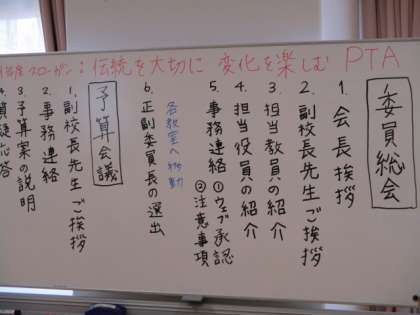 スローガン：伝統を大切に 変化を楽しむ PTA
委員総会
1. 会長挨拶
2. 副校長先生ご挨拶
3. 担当教員の紹介
4. 担当役員の紹介
5. 事務連絡 ①ウェブ承認
②注意事項
各教室へ移動
6. 正副委員長の選出
予算会議
1. 副校長先生ご挨拶
2. 事務連絡
3. 予算案の説明
4. 質疑応答